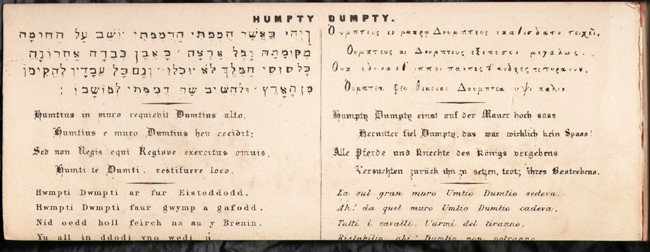 HUMPTY DUMPTY.
ויהי כאשר הֻמפתי הדמפתי יושב על החומה
מקומתה ויפל ארצה כאבן כבדה אחרונה
כל סוסי המלך לא יוכלו וגם כל עבדיו להקימו
מן הארץ ולהשיב שר דמפתי למושבו:
Humtius in muro requievit Dumtius alto,
Humtius e muro Dumtius heu cecidit;
Sed non Regis equi Regisve exercitus omnis,
Humti te Dumti, restituere loco.
Hwmpti Dwmpti ar fur Eisteddodd,
Hwmpti Dwmpti faur gwymp a gafodd,
Nid oedd holl feirch na au y Brenin,
Yu all in ddodi yno wedi
Δουμπτιυς τειχει,
Δουμπτιυς εξεπεσεν μεγαλως.
Ουκ ιπποι παντες
Δουμπτεα παλιν.
Humpty Dumpty einst auf der Mauer hoch sass
Herunter fiel Dumpty, das war wirklich kein Spass!
Alle Pferde und Knechte des Königs vergebens
Versuchten zurück ihn zu setzen, trotz ihres Bestrebens.
La sul gran muro Umtio Dumtio sedeva,
Ah! da quel muro Umtio Dumtio cadeva,
Tutti i cavalli, l'armi del tiranno,
Dumtio non potranno